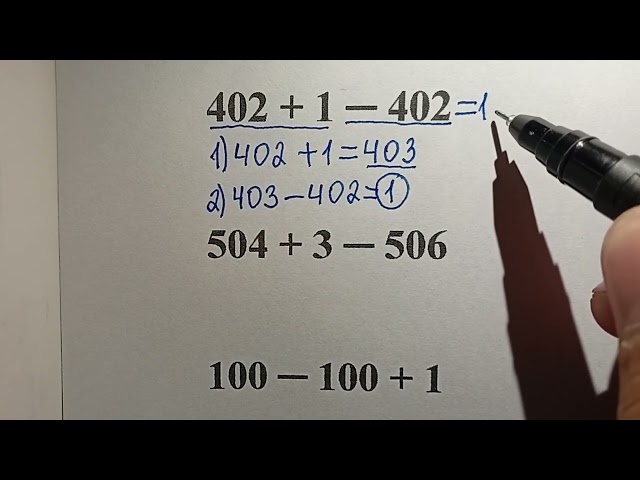 402 + 1 − 402 = 1
1) 402 + 1 = 403
2) 403 − 402 = 1
504 + 3 − 506
100 − 100 + 1